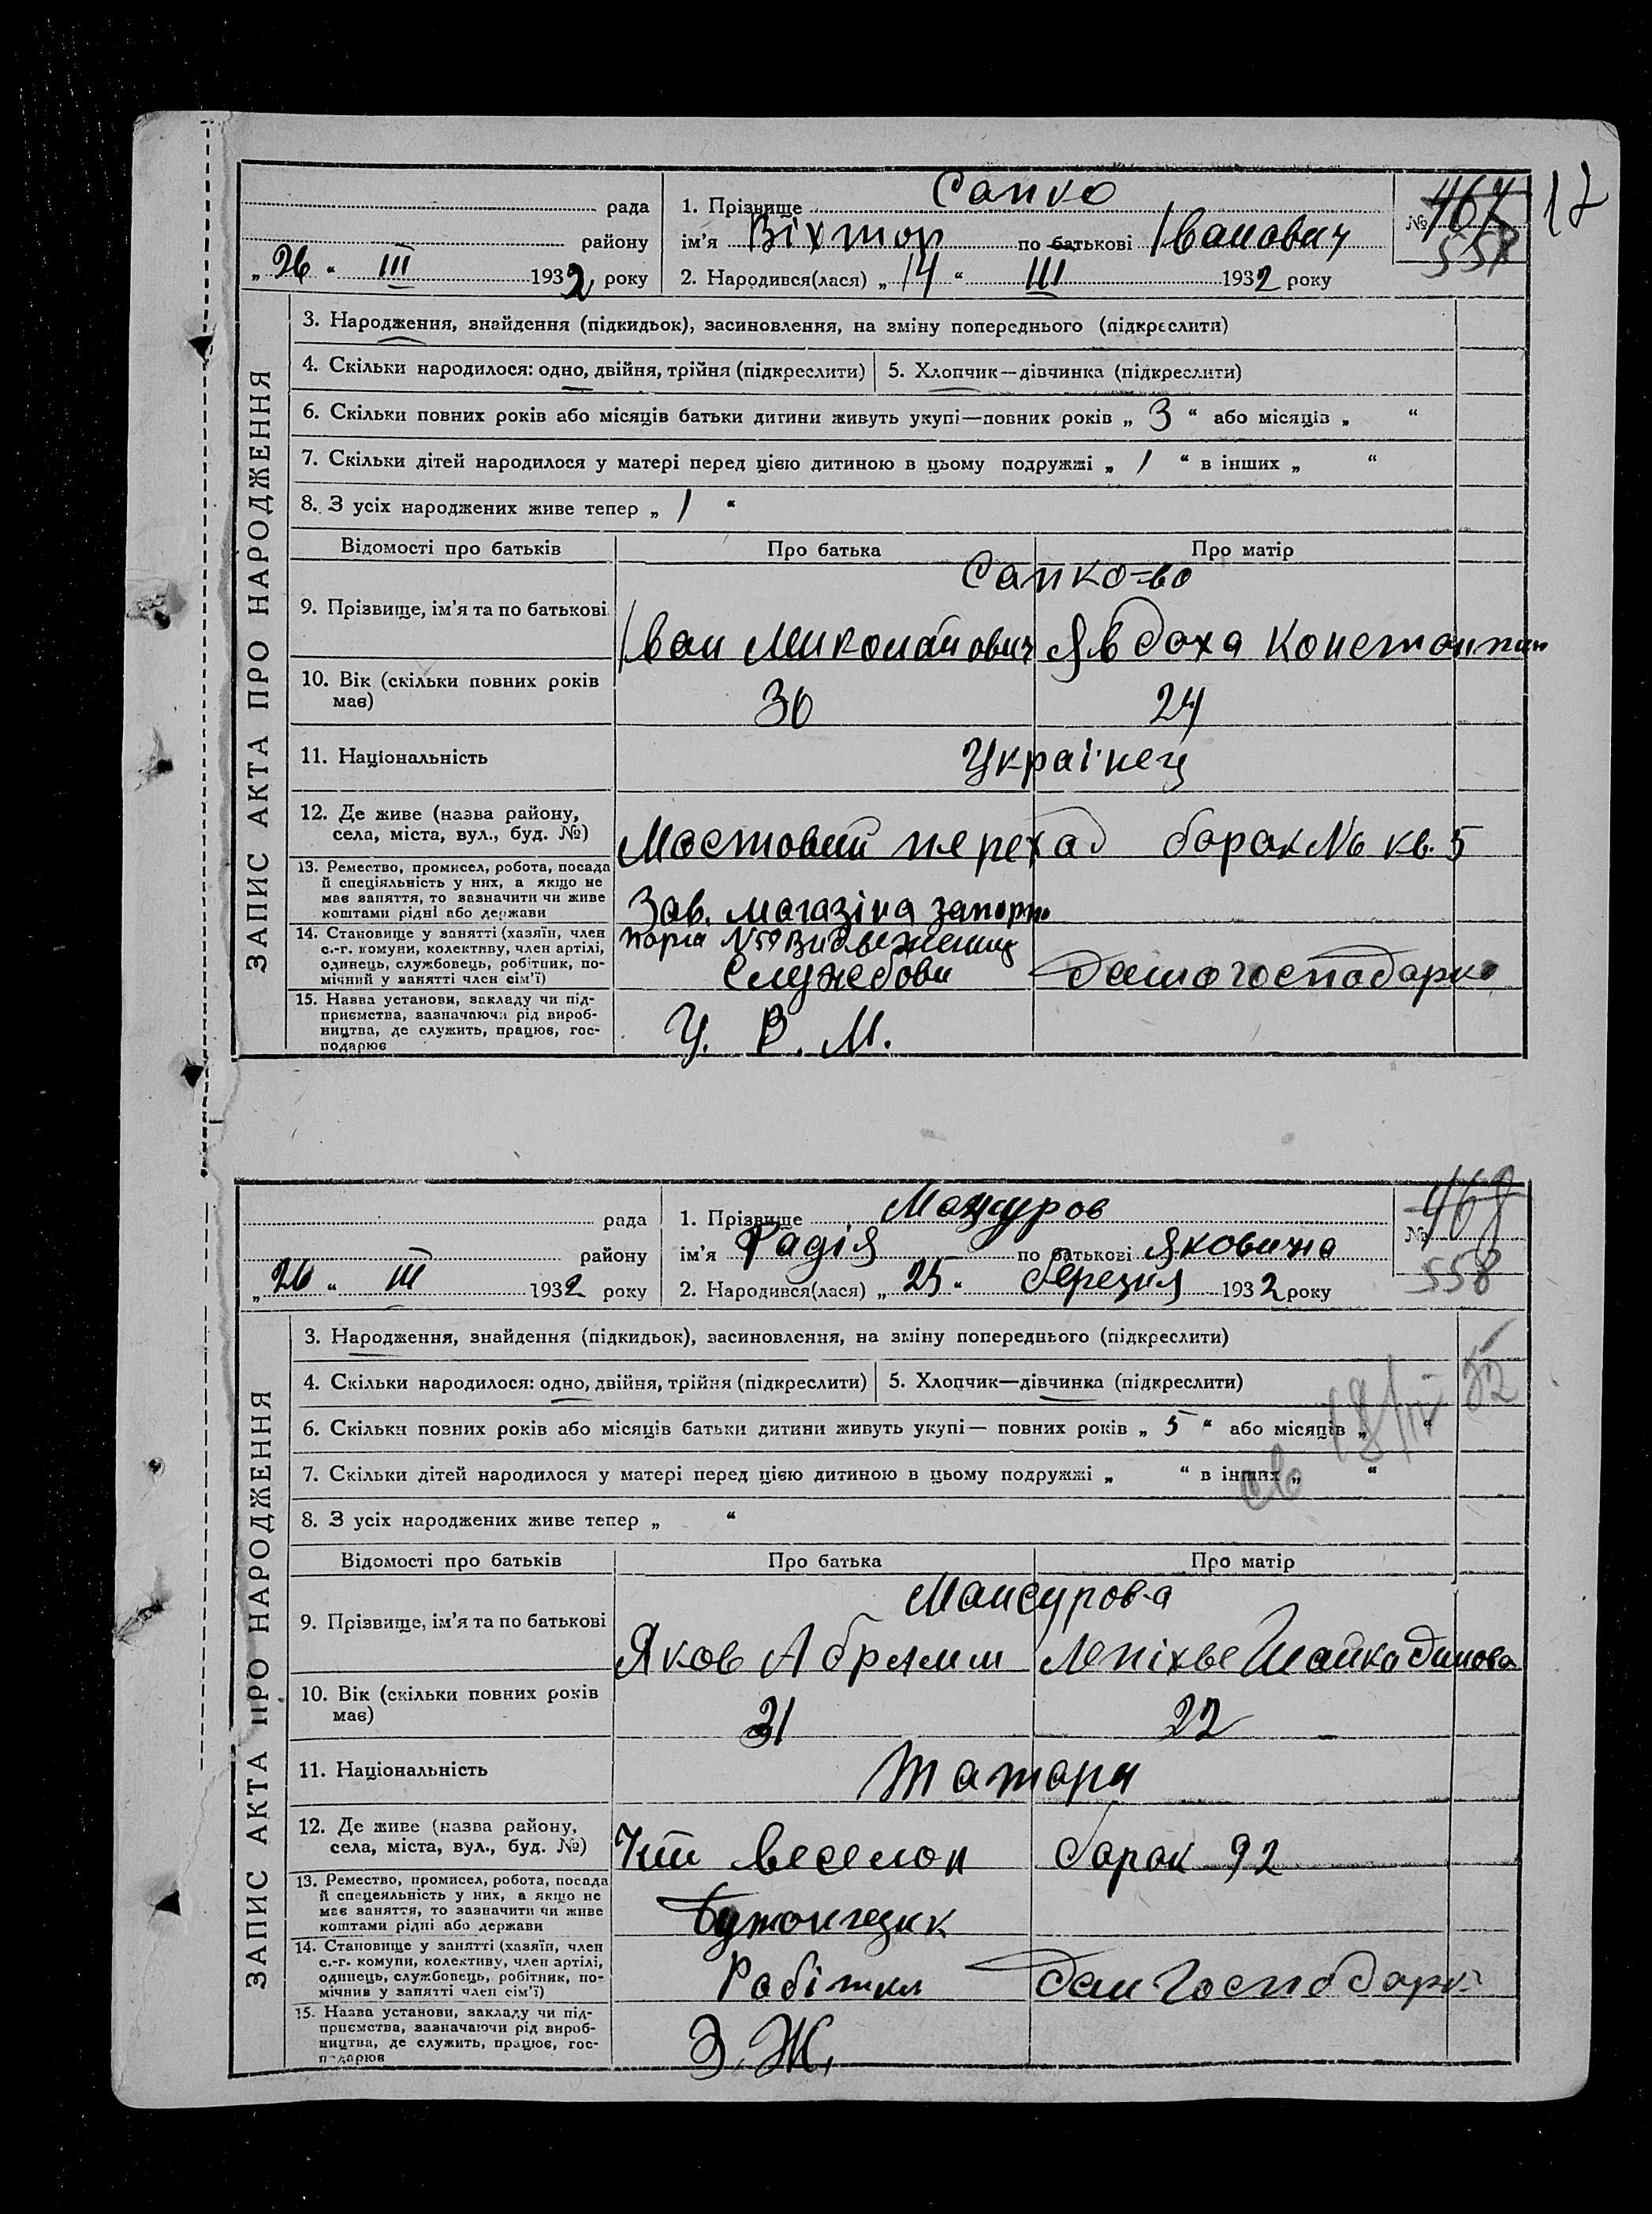 17
рада 1. Прізвище Сапко № 467
району ім'я Віктор по батькові Іванович 557
„26“ III 1932 року 2. Народився(лася) „14“ III 1932 року
ЗАПИС АКТА ПРО НАРОДЖЕННЯ
3. Народження, знайдення (підкидьок), засиновлення, на зміну попереднього (підкреслити)
4. Скільки народилося: одно, двійня, трійня (підкреслити) 5. Хлопчик—дівчинка (підкреслити)
6. Скільки повних років або місяців батьки дитини живуть укупі—повних років „3“ або місяців „ “
7. Скільки дітей народилося у матері перед цією дитиною в цьому подружжі „1“ в інших „ “
8. З усіх народжених живе тепер „1“
Відомості про батьків Про батька Про матір
Сапко-во
9. Прізвище, ім'я та по батькові Іван Миколайович Явдоха Констонтин
10. Вік (скільки повних років
має) 30 24
11. Національність Українец
12. Де живе (назва району,
села, міста, вул., буд. №) Мостовий переход барак № кв. 5
13. Ремество, промисел, робота, посада
й спеціяльність у них, а якщо не
має заняття, то зазначити чи живе
коштами рідні або держави Зав. магазіна
14. Становище у занятті (хазяїн, член
с.-г. комуни, колективу, член артілі,
одинець, службовець, робітник, по-
мічний у занятті член сім'ї) Службови домогосподарка
15. Назва установи, закладу чи під-
приємства, зазначаючи рід вироб-
ництва, де служить, працює, гос-
подарює У. Р. М.
рада 1. Прізвище Мансуров № 468
району ім'я Радія по батькові Яковична 558
„26“ III 1932 року 2. Народився(лася) „25“ березня 1932 року
ЗАПИС АКТА ПРО НАРОДЖЕННЯ
3. Народження, знайдення (підкидьок), засиновлення, на зміну попереднього (підкреслити)
4. Скільки народилося: одно, двійня, трійня (підкреслити) 5. Хлопчик—дівчинка (підкреслити)
18/IV 52
6. Скільки повних років або місяців батьки дитини живуть укупі— повних років „5“ або місяців „ “
7. Скільки дітей народилося у матері перед цією дитиною в цьому подружжі „ “ в інших „ “
8. З усіх народжених живе тепер „ “
Відомості про батьків Про батька Про матір
Мансуров-а
9. Прізвище, ім'я та по батькові Яков Абрямим
10. Вік (скільки повних років
має) 31 22
11. Національність Татари
12. Де живе (назва району,
села, міста, вул., буд. №) барак 92
13. Ремество, промисел, робота, посада
й спецеяльність у них, а якщо не
має заняття, то зазначити чи живе
коштами рідні або держави Бутонщик
14. Становище у занятті (хазяїн, член
с.-г. комуни, колективу, член артілі,
одинець, службовець, робітник, по-
мічнив у занятті член сім'ї) Робітник дом господарк
15. Назва установи, закладу чи під-
приємства, зазначаючи рід вироб-
ництва, де служить, працює, гос-
подарює З. Ж.